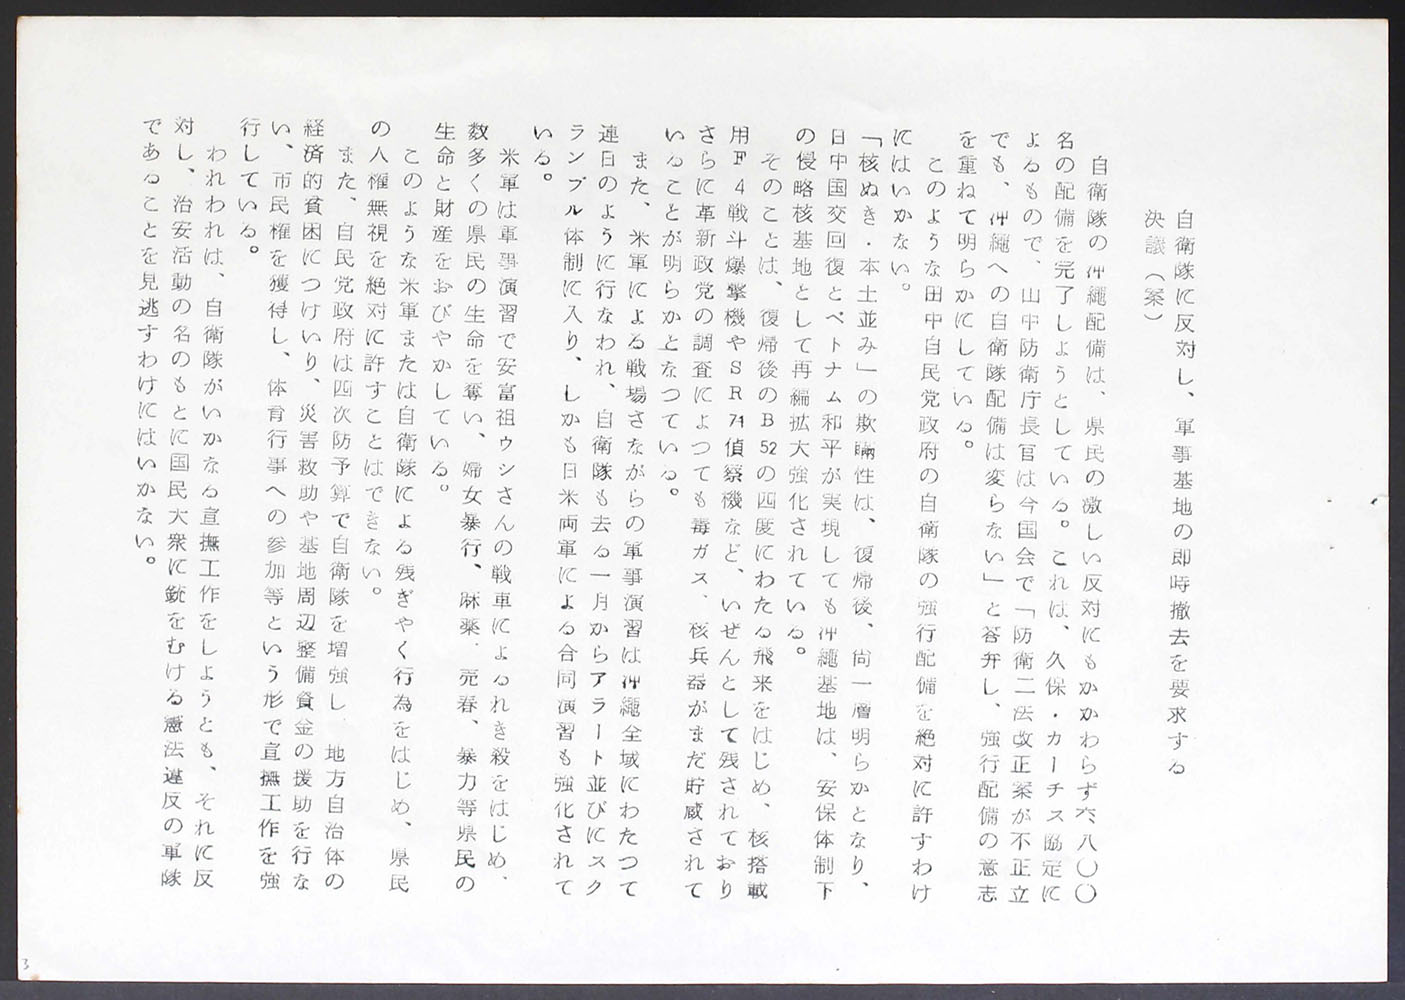 自衛隊に反対し、軍事基地の即時撤去を要求する
決議（案）
自衛隊の沖縄配備は、県民の激しい反対にもかかわらず六、八〇〇
名の配備を完了しようとしている。これは、久保・カーチス協定に
よるもので、山中防衛庁長官は今国会で「防衛二法改正案が不正立
でも、沖縄への自衛隊配備は変らない」と答弁し、強行配備の意志
を重ねて明らかにしている。
このような田中自民党政府の自衛隊の強行配備を絶対に許すわけ
にはいかない。
「核ぬき・本土並み」の欺瞞性は、復帰後、尚一層明らかとなり、
日中国交回復とベトナム和平が実現しても沖縄基地は、安保体制下
の侵略核基地として再編拡大強化されている。
そのことは、復帰後のB52の四度にわたる飛来をはじめ、核搭載
用F4戦斗爆撃機やSR71偵察機など、いぜんとして残されており
さらに革新政党の調査によつても毒ガス、核兵器がまだ貯蔵されて
いることが明らかとなつている。
また、米軍による戦場さながらの軍事演習は沖縄全域にわたつて
連日のように行なわれ、自衛隊も去る一月からアラート並びにスク
ランブル体制に入り、しかも日米両軍による合同演習も強化されて
いる。
米軍は軍事演習で安富祖ウシさんの戦車によるれき殺をはじめ、
数多くの県民の生命を奪い、婦女暴行、麻薬、売春、暴力等県民の
生命と財産をおびやかしている。
このような米軍または自衛隊による残ぎやく行為をはじめ、県民
の人権無視を絶対に許すことはできない。
また、自民党政府は四次防予算で自衛隊を増強し、地方自治体の
経済的貧困につけいり、災害救助や基地周辺整備資金の援助を行な
い、市民権を獲得し、体育行事への参加等という形で宣撫工作を強
行している。
われわれは、自衛隊がいかなる宣撫工作をしようとも、それに反
対し、治安活動の名のもとに国民大衆に銃をむける憲法違反の軍隊
であることを見逃すわけにはいかない。
3